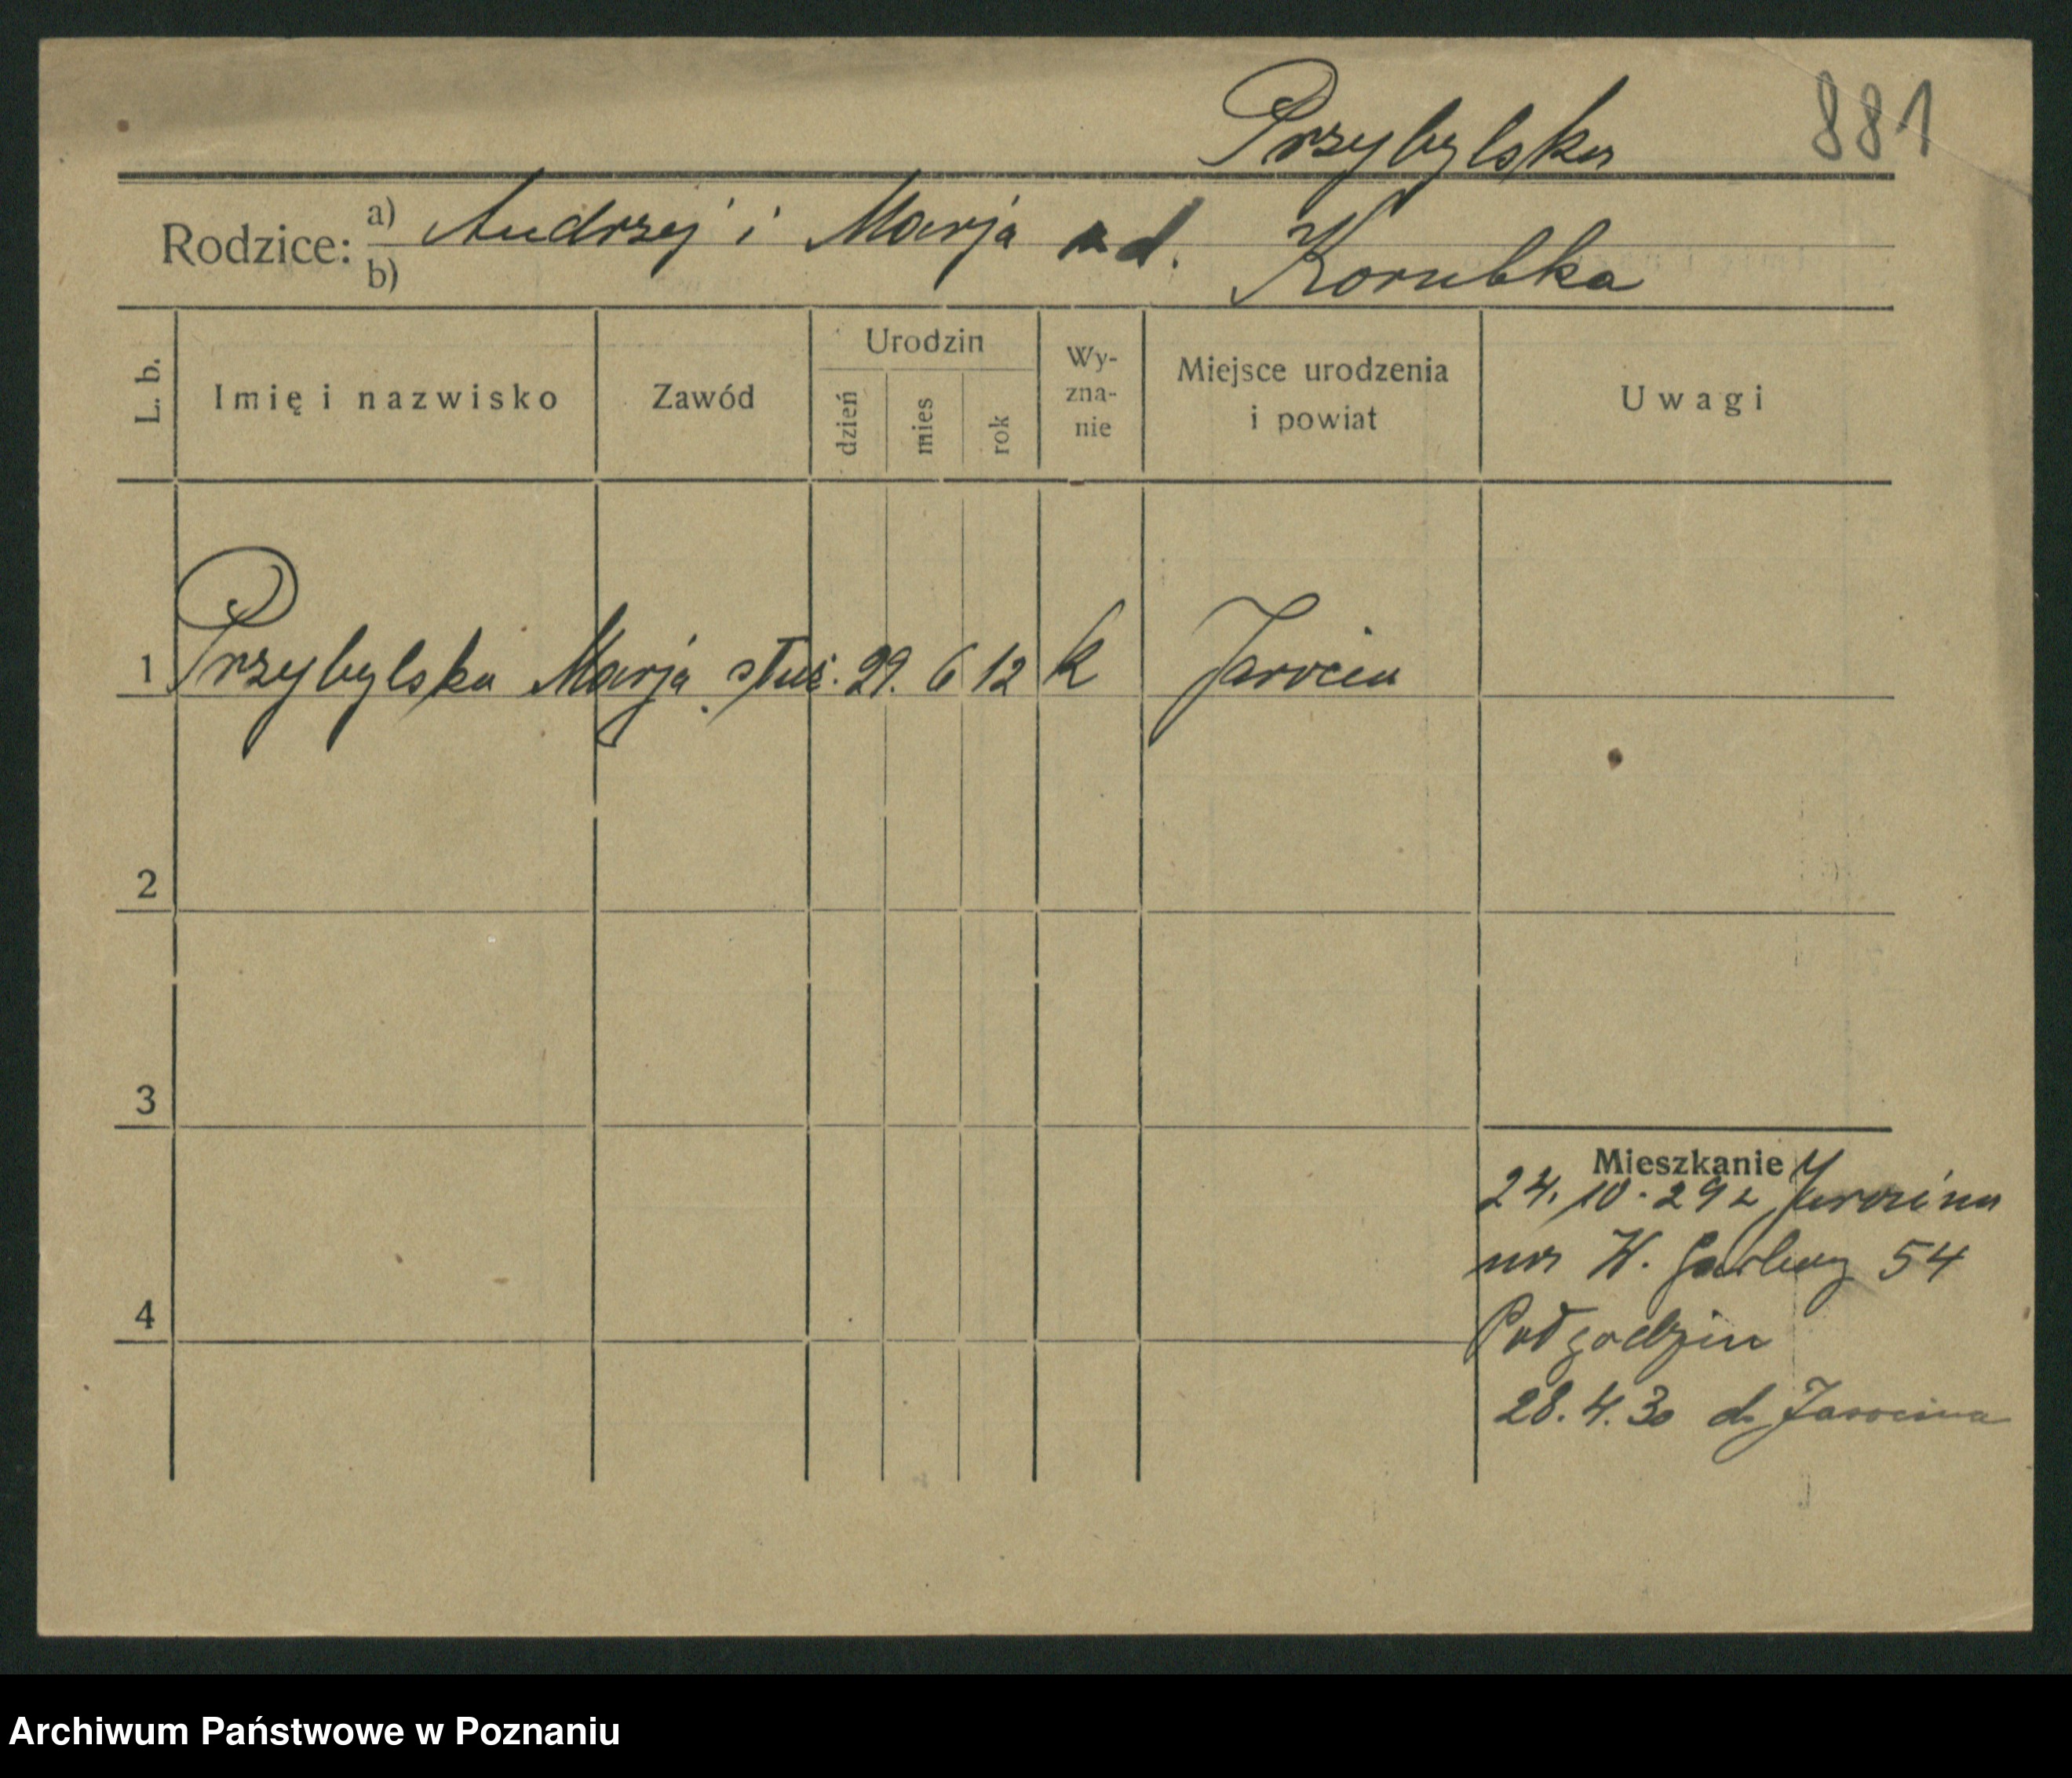 Przybylska 881
Rodzice: a) Andrzej i Marja
b) Korubka
L. b.
Imię i nazwisko
Zawód
Urodzin
dzień
mies
rok
Wy-
zna-
nie
Miejsce urodzenia
i powiat
Uwagi
1 Przybylska Marja służ. 29. 6 12 k Jarocin
2
3
4
Mieszkanie
24. 10. 29 z Jarocina
na W. Garbary 54
28. 4. 30 do Jarocina
Archiwum Państwowe w Poznaniu